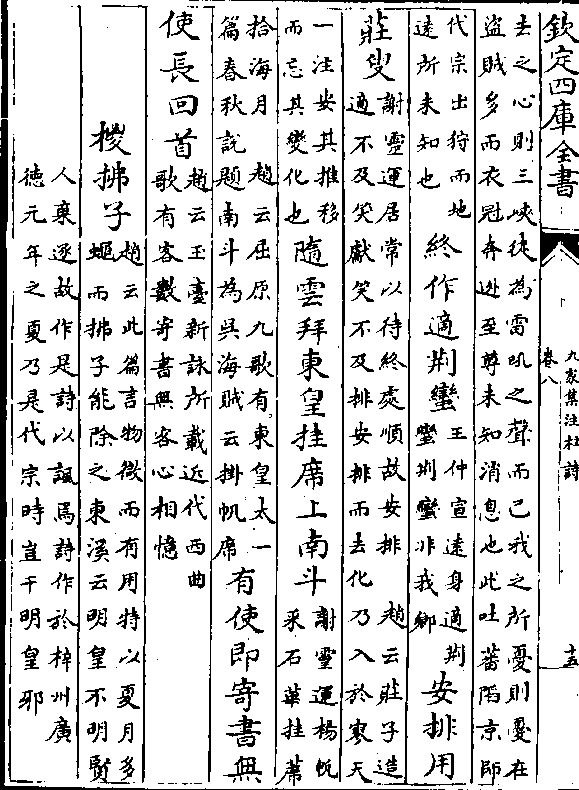 欽定四庫全書
九家集注杜詩
卷八
十五
去之心則三峽徒為雷吼之聲而已我之所憂則憂在
盜賊多而衣冠奔逃至尊未知消息也此吐蕃陷京師
代宗出狩而地
遠所未知也
終作適荆蠻
王仲宣遠身適荆
蠻荆蠻非我鄉
安排用
莊叟
謝靈運居常以待終處順故安排 趙云莊子造
適不及笑獻笑不及排安排而去化乃入於寥天
一注安其推移
而忘其變化也
隨雲拜東皇挂席上南斗
謝靈運楊帆
采石華挂席
拾海月 趙云屈原九歌有東皇太一
篇春秋説題南斗為吳海賊云掛帆席
有使即寄書無
使長回首
趙云玉臺新詠所載近代西曲
歌有客數寄書無客心相憶
椶拂子
趙云此篇言物微而有用特以夏月多
蠅而拂子能除之東溪云明皇不明賢
人棄逐故作是詩以諷焉詩作於梓州廣
徳元年之夏乃是代宗時豈干明皇邪